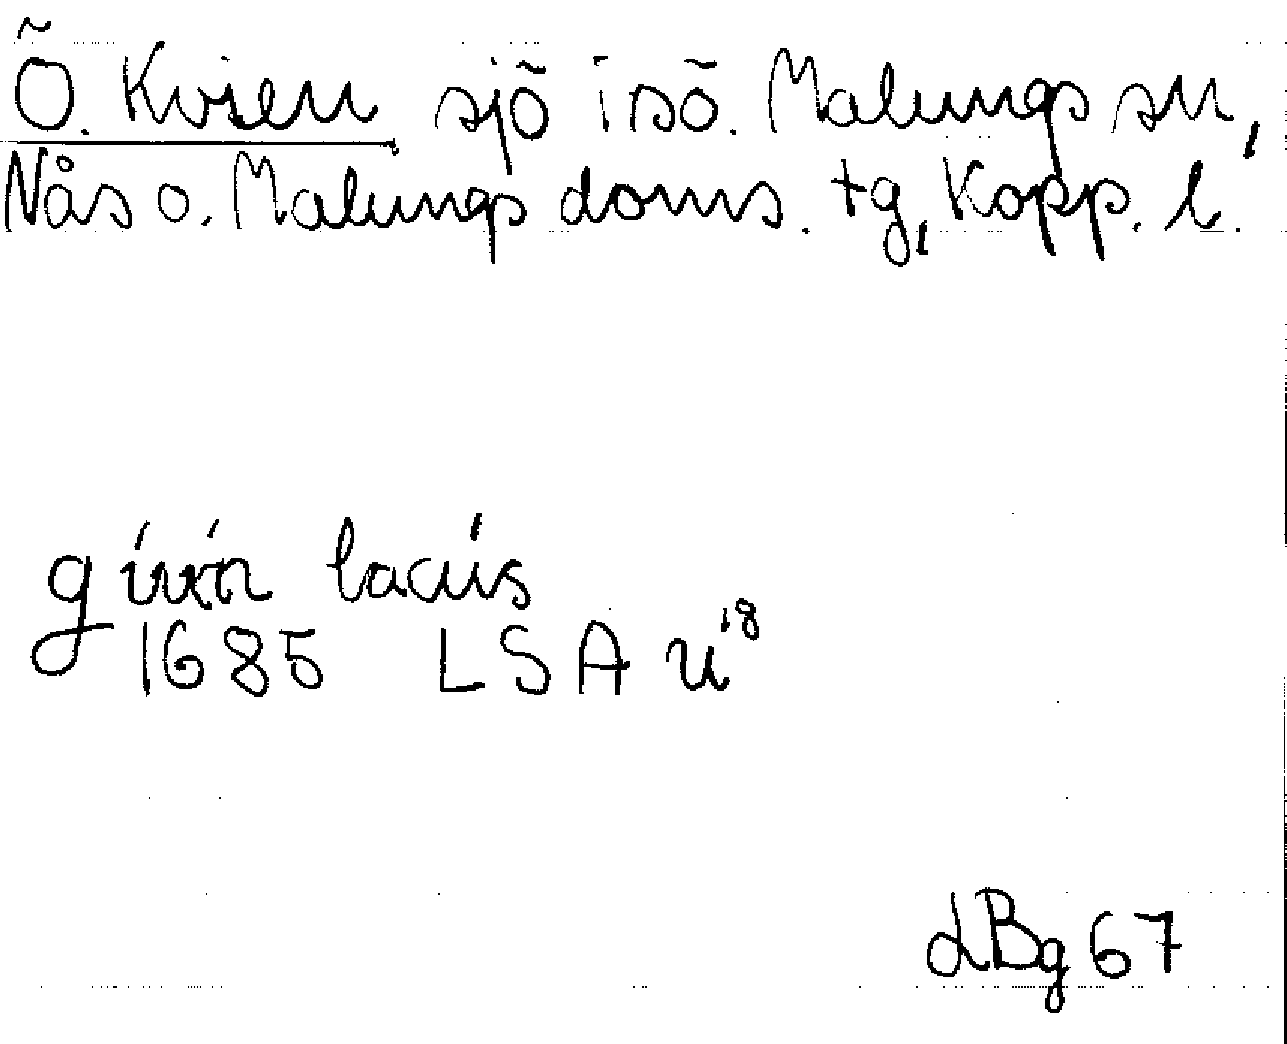 Ö. Kvien sjö i sö. Malungs sn,
Nås o. Malungs doms. tg, Kopp. l.
lacus
1685 LSA u¹⁸
LBg 67